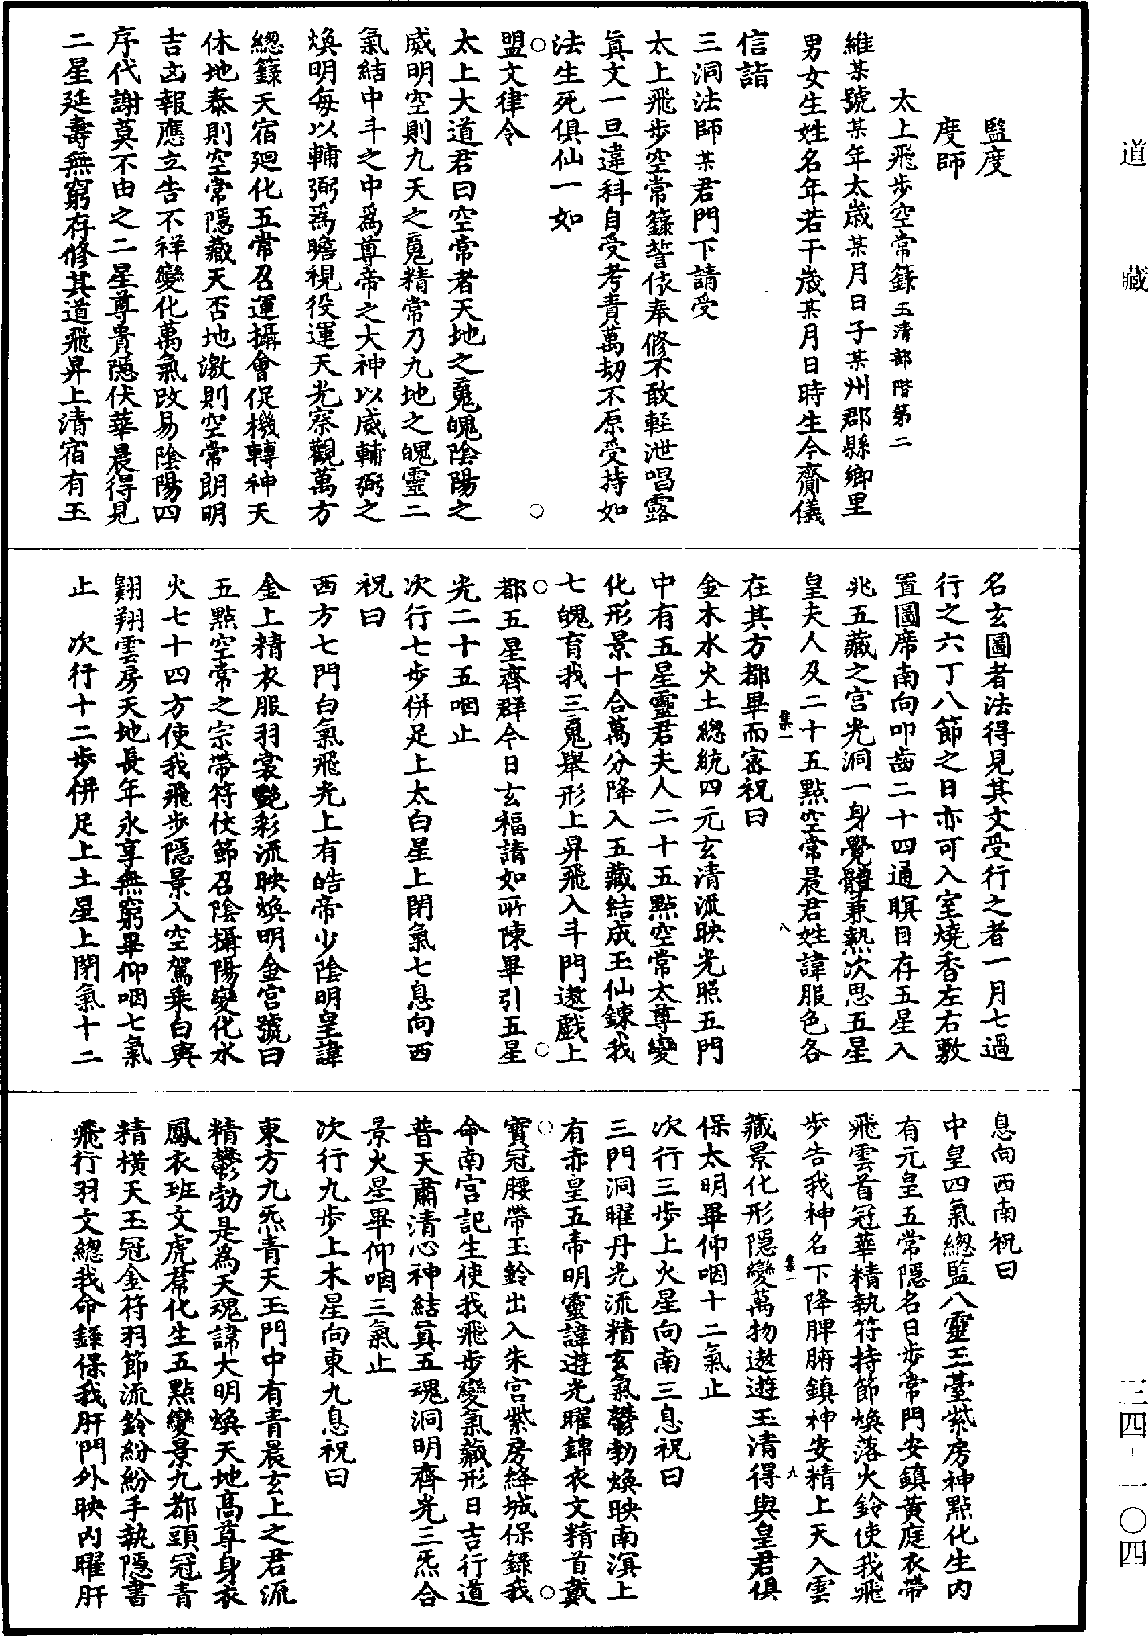 道藏
三四-一〇四
監度
度師
太上飛步空常籙玉清部階第二
維某號某年太歲某月日子某州郡縣鄉里
男女生姓名年若干歲某月日時生今齎儀
信詣
三洞法師某君門下請受
太上飛步空常籙誓依奉修不敢輕泄唱露
眞文一旦違科自受考責萬劫不原受持如
法生死俱仙一如
盟文律令
太上大道君曰空常者天地之䰟魄陰陽之
威明空則九天之䰟精常乃九地之魄靈二
氣結中斗之中爲尊帝之大神以威輔弼之
煥明每以輔弼爲瞻視役運天光察觀萬方
總籙天宿廻化五常召運攝會促機轉神天
休地泰則空常隱藏天否地激則空常朗明
吉凶報應立告不祥變化萬氣改易陰陽四
序代謝莫不由之二星尊貴隱伏華晨得見
二星延壽無窮存修其道飛昇上清宿有玉
名玄圖者法得見其文受行之者一月七過
行之六丁八節之日亦可入室燒香左右敷
置圖席南向叩齒二十四通瞑目存五星入
兆五藏之宮光洞一身覺體兼熱次思五星
皇夫人及二十五點空常晨君姓諱服色各
集一
八
在其方都畢而審祝曰
金木水火土總統四元玄清流映光照五門
中有五星靈君夫人二十五點空常太尊變
化形景十合萬分降入五藏結成玉仙鍊我
七魄育我三䰟舉形上昇飛入斗門遨戲上
都五星齊群今日玄福請如所陳畢引五星
光二十五咽止
次行七步併足上太白星上閉氣七息向西
祝曰
西方七門白氣飛光上有皓帝少陰明皇諱
金上精衣服羽裳艷彩流映煥明金宮號曰
五點空常之宗帶符伏節召陰攝陽變化水
火七十四方使我飛步隱景入空駕乘白輿
翱翔雲房天地長年永享無窮畢仰咽七氣
止　次行十二步併足上土星上閉氣十二
息向西南祝曰
中皇四氣總監八靈三臺紫房神點化生內
有元皇五常隱名日步常門安鎮黃庭衣帶
飛雲首冠華精執符持節煥落火鈴使我飛
步告我神名下降脾腑鎮神安精上天入雲
集一
九
藏景化形隱變萬物遨遊玉清得與皇君俱
保太明畢仰咽十二氣止
次行三步上火星向南三息祝曰
三門洞曜丹光流精玄氣鬱勃煥映南溟上
有赤皇五帝明靈諱遊光曜錦衣文精首戴
寶冠腰帶玉鈴出入朱宮紫房絳城保錄我
命南宮記生使我飛步變氣藏形日吉行道
普天肅清心神結眞五魂洞明齊光三炁合
景火星畢仰咽三氣止
次行九步上木星向東九息祝曰
東方九炁青天玉門中有青晨玄上之君流
精鬱勃是爲天魂諱大明煥天地高尊身衣
鳳衣班文虎帬化生五點變景九都頭冠青
精橫天玉冠金符羽節流鈴紛紛手執隱書
飛行羽文總我命籙保我肝門外映內曜肝